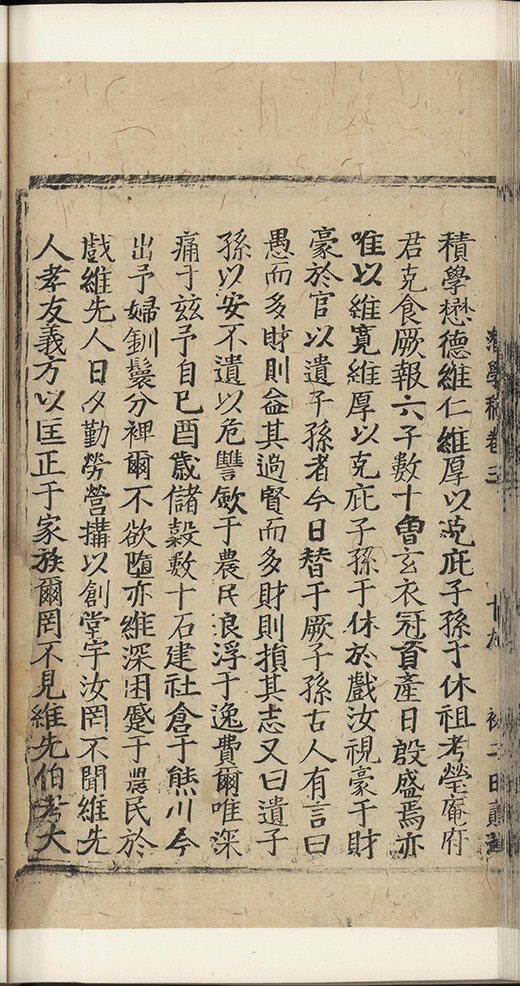 學稿卷三 十九
積學懋德維仁維厚以克庇子孫于休祖考瑩庵府
君克食厥報六子數十曾玄衣冠資產日殷盛焉亦
唯以維寬維厚以克庇子孫于休於戲汝視豪于財
豪於官以遺子孫者今日替于厥子孫古人有言曰
愚而多財則益其過賢而多財則損其志又曰遺子
孫以安不遺以危讐歛于農民浪浮于逸費爾唯深
痛于玆予自己酉歲儲穀數十石建社倉于熊川今
出予婦釧鬟分裨爾不欲墮亦維深困蹙于農民於
戲維先人日夕勤勞營搆以創堂宇汝罔不聞維先
人孝友義方以匡正于家族爾罔不見維先伯考大